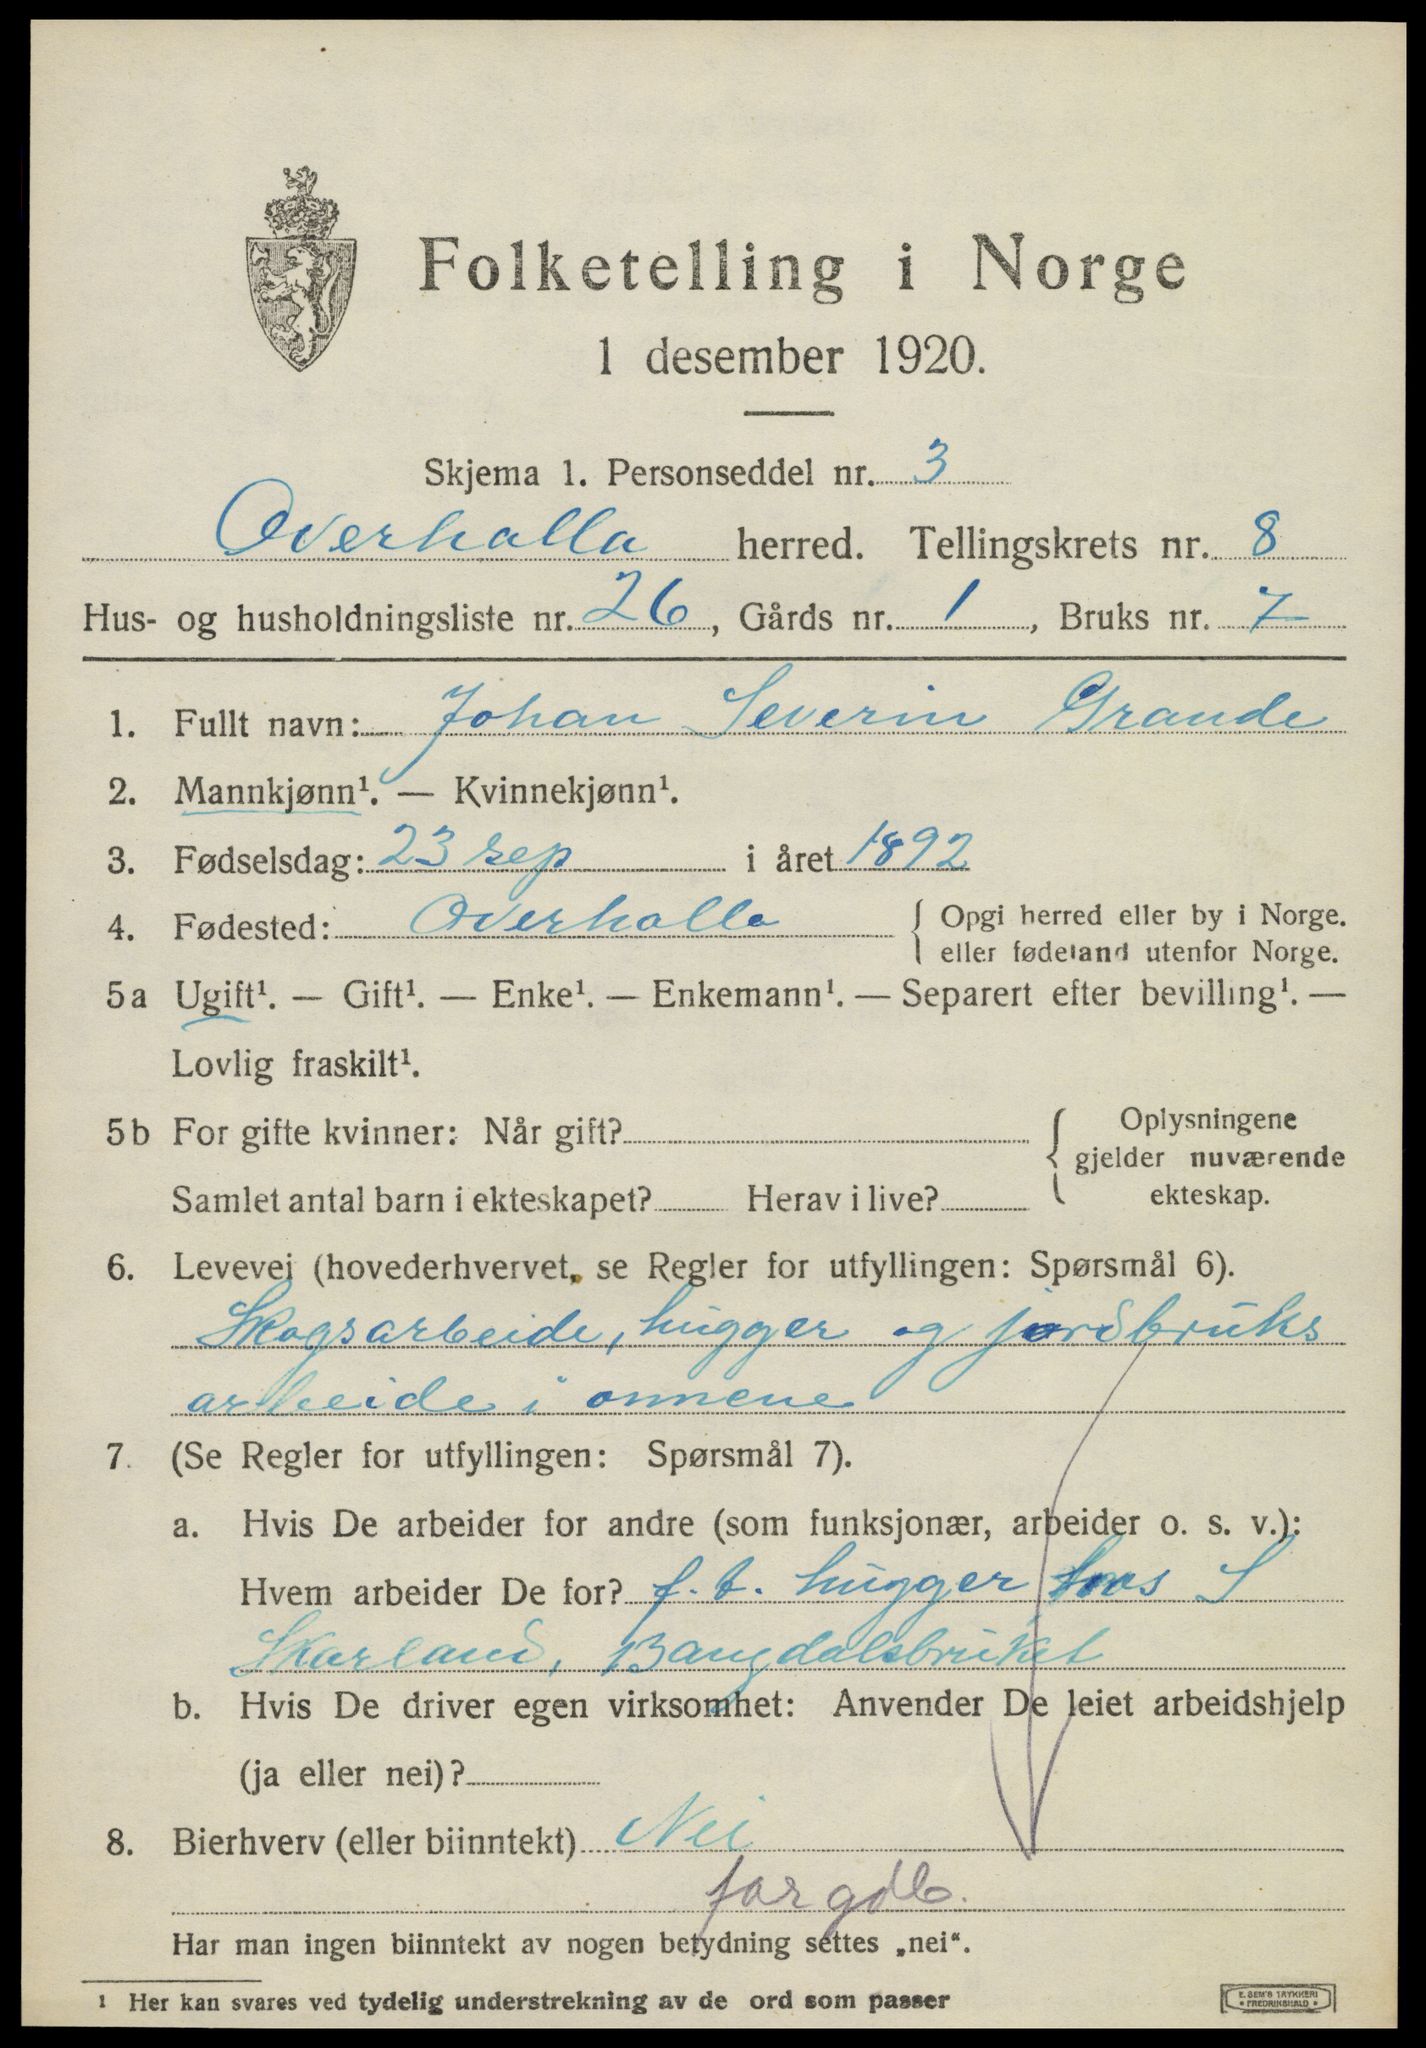 Folketelling i Norge
1 desember 1920.
Skjema 1. Personseddel nr. 3
Overhalla herred. Tellingskrets nr. 8
Hus- og husholdningsliste nr. 26, Gårds nr. 1, Bruks nr. 7
1. Fullt navn: Johan Severin Grande
2. Mannkjønn¹. — Kvinnekjønn¹.
3. Fødselsdag: 23 sep i året 1892
4. Fødested: Overhalla { Opgi herred eller by i Norge.
eller fødeland utenfor Norge.
5a Ugift¹. — Gift¹. — Enke¹. — Enkemann¹. — Separert efter bevilling¹. —
Lovlig fraskilt¹.
5b For gifte kvinner: Når gift? { Oplysningene
gjelder nuværende
Samlet antal barn i ekteskapet? Herav i live? ekteskap.
6. Levevei (hovederhvervet, se Regler for utfyllingen: Spørsmål 6).
Skogsarbeide, hugger og jordbruks
arbeide i onnene
7. (Se Regler for utfyllingen: Spørsmål 7).
a. Hvis De arbeider for andre (som funksjonær, arbeider o. s. v.):
Hvem arbeider De for? f. t. hugger hos S
Skarland, Bangdalsbruket
b. Hvis De driver egen virksomhet: Anvender De leiet arbeidshjelp
(ja eller nei)?
8. Bierhverv (eller biinntekt) Nei
for gdb.
Har man ingen biinntekt av nogen betydning settes „nei“.
1 Her kan svares ved tydelig understrekning av de ord som passer
E. SEM'S TRYKKERI
• FREDRIKSHALD •